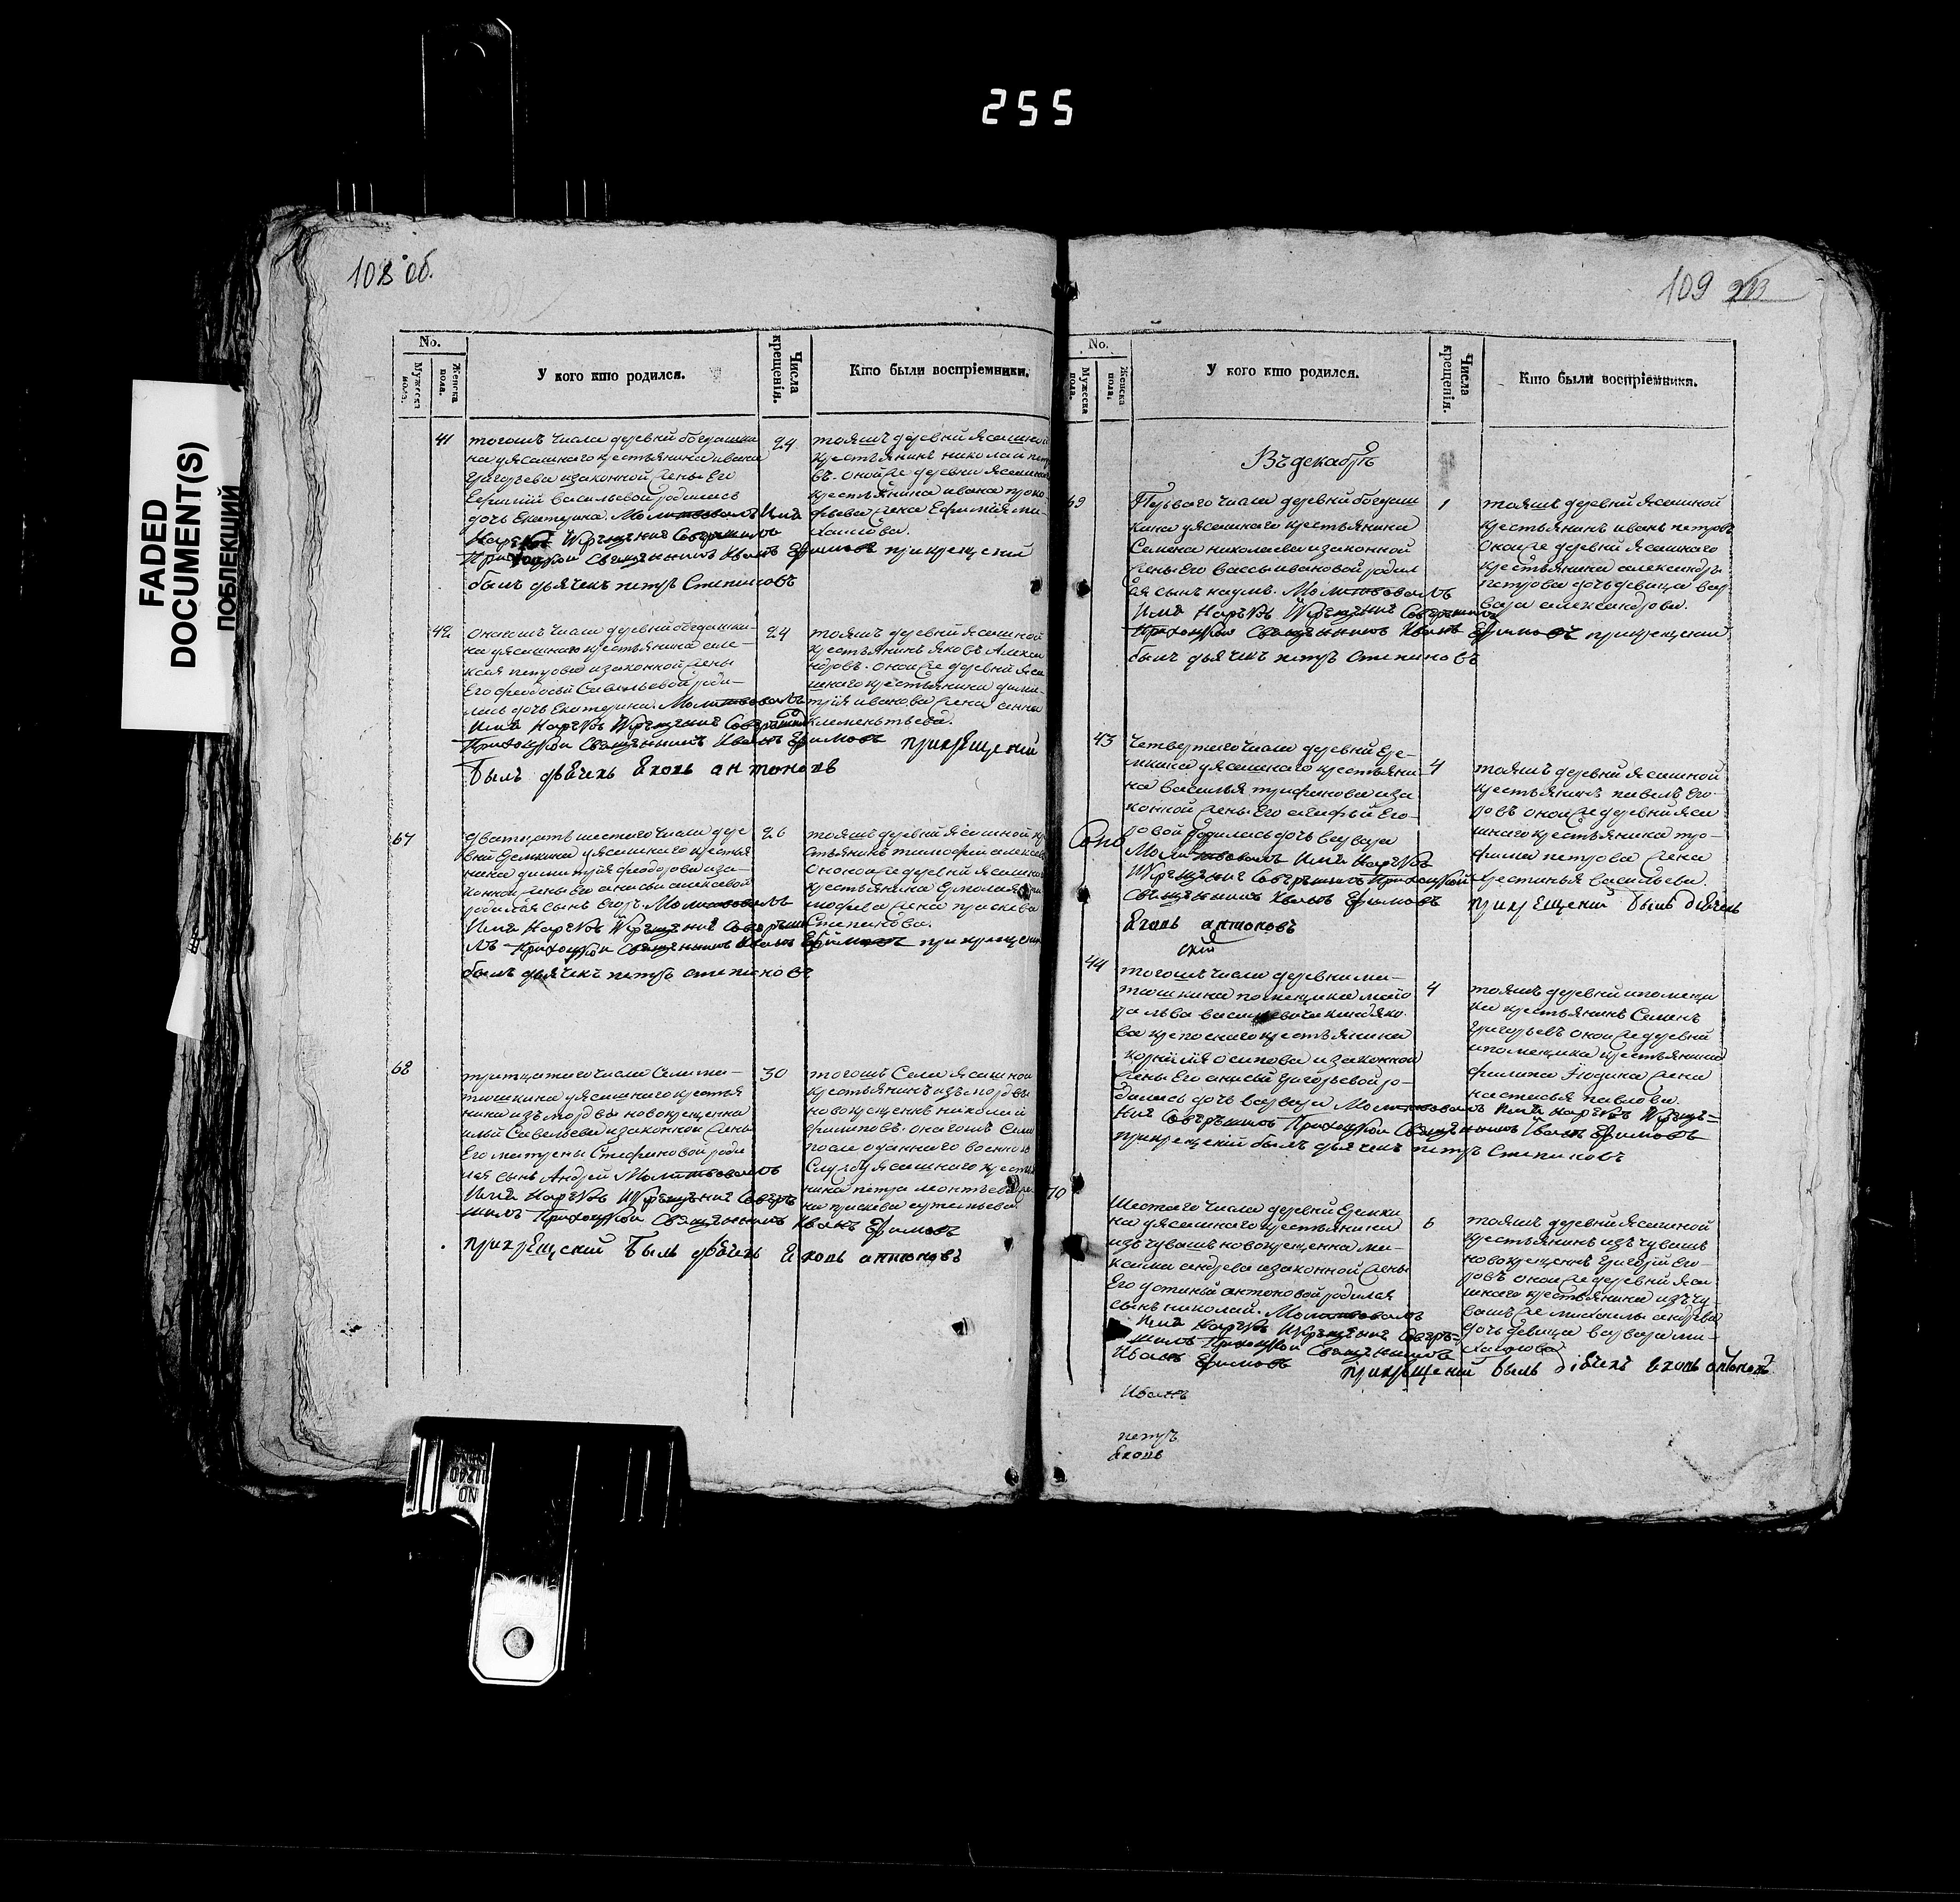 255
FADED
DOCUMENT(S)
ПОБЛЕКШИЙ
108 об.
No.
Мужеска пола.
Женска пола.
У кого кто родился.
Числа крещенія.
Кто были воспріемники.
41
тогошъ числа деревни богдашки
на уясашнаго крестьянина ивана
григорьева изаконной жены Его
Ефимiи васильевой родилась
дочь Екатерина. Молитвовалъ Имя
Нарѣкъ Крѣщение Совершилъ
Приходской Священникъ Иванъ Ефимовъ прикрещении
былъ дьячекъ петръ Степановъ
24
тояшъ деревни Ясашной
крестьянинъ николай
въ. оной же деревни Ясашнаго
крестьянина ивана проко
фьева жена Ефимiя ми
хаилова.
42
числа деревни богдашки
на уясашнаго крестьянина але
ксея петрова изаконной жены
Его феодосьи Савельевой роди
лась дочь Екатерина. Молитвовалъ
Имя Нарѣкъ Крѣщение Совершилъ
Приходской Священникъ Иванъ Ефимовъ прикрещении
былъ дьячекъ Яковъ антоновъ
24
тояшъ деревни Ясашной
крестьянинъ Яковъ Алекса
ндровъ. оной же деревни Яса
шнаго крестьянина дими
трiя иванова жена анна
клементьева.
67
дватцать шестаго числа дере
вни Еремкина уясашнаго крестья
нина димитрiя феодорова иза
конной жены Его анисьи алексевой
родился сынъ Егоръ. Молитвовалъ
Имя Нарѣкъ Крѣщение Соверши
лъ Приходской Священникъ Иванъ Ефимовъ прикрещении
былъ дьячекъ петръ степановъ
26
тояшъ деревни Ясашной кре
стьянинъ тимофей алексеевъ
оной же деревни Ясашнаго
крестьянина Ермолая
жена праскева
Степанова.
68
тритцатаго числа Села ма
тюшкина уясашнаго крестья
нина изъ мордвы новокрещенна
ильи Савельева изаконной жены
Его матрены Стефановой роди
лся сынъ Андрей Молитвовалъ
Имя Нарѣкъ Крѣщение Совер
шилъ Приходской Священникъ Иванъ Ефимовъ
прикрещении былъ дьячекъ Яковъ антоновъ
30
тогошъ Села Ясашной
крестьянинъ изъ мордвы
новокрещеннъ николай
филиповъ. онагошъ Села
после отданнаго военною
Службу Ясашнаго крестья
нина петра леонтьева же
на праскева
109
No.
Мужеска пола.
Женска пола.
У кого кто родился.
Числа крещенія.
Кто были воспріемники.
Въ декабрѣ
69
Перваго числа деревни богдаш
кина уясашнаго крестьянина
Семена николаева изаконной
жены Его вассы ивановой родил
ся сынъ наумъ. Молитвовалъ
Имя Нарѣкъ Крѣщение Совершилъ
Приходской Священникъ Иванъ Ефимовъ прикрещении
былъ дьячекъ петръ степановъ
1
тояшъ деревни Ясашной
крестьянинъ иванъ петровъ
оной же деревни Ясашнаго
крестьянина александра
петрова дочь девица вар
вара александрова.
43
Четвертаго числа деревни Ере
мкина уясашнаго крестьяни
на василья трифонова иза
конной жены Его агафьи Его
ровой родилась дочь варвара
Молитвовалъ Имя Нарѣкъ
Крѣщение Совершилъ Приходской
Священникъ Иванъ Ефимовъ прикрещении былъ дьячекъ
Яковъ антоновъ
4
тояшъ деревни Ясашной
крестьянинъ павелъ Его
ровъ оной же деревни Яса
шнаго крестьянина тро
фима петрова жена
крестинья васильева.
44
тогошъ числа деревни ма
тюшкина помещика маiо
ра льва васильевича
ва крепоснаго крестьянина
корнилiя осипова изаконной
жены Его анисьи григорьевой ро
дилась дочь варвара Молитвовалъ Имя Нарѣкъ Крѣще
ние Совершилъ Приходской Священникъ Иванъ Ефимовъ
прикрещении былъ дьячекъ петръ Степановъ
4
тояшъ деревни ипомещи
ка крестьянинъ Семенъ
григорьевъ оной же деревни
ипомещика крестьянина
филипа Юдина жена
настасья павлова.
70
Шестаго числа деревни Еремки
на уясашнаго крестьянина
изъ чувашъ новокрещенна ми
андрева изаконной жены
Его устиньи антоновой родился
сынъ николай. Молитвовалъ
Имя Нарѣкъ Крѣщение Совер
шилъ Приходской Священникъ
Иванъ Ефимовъ прикрещении былъ дьячекъ Яковъ антоновъ
6
тояшъ деревни Ясашной
крестьянинъ изъ чувашъ
новокрещеннъ григорiй Его
ровъ оной же деревни Яса
шнаго крестьянина изъ чу
вашъ же михаила андрева
дочь девица варвара ми
хаилова
Иванъ
петръ
Яковъ